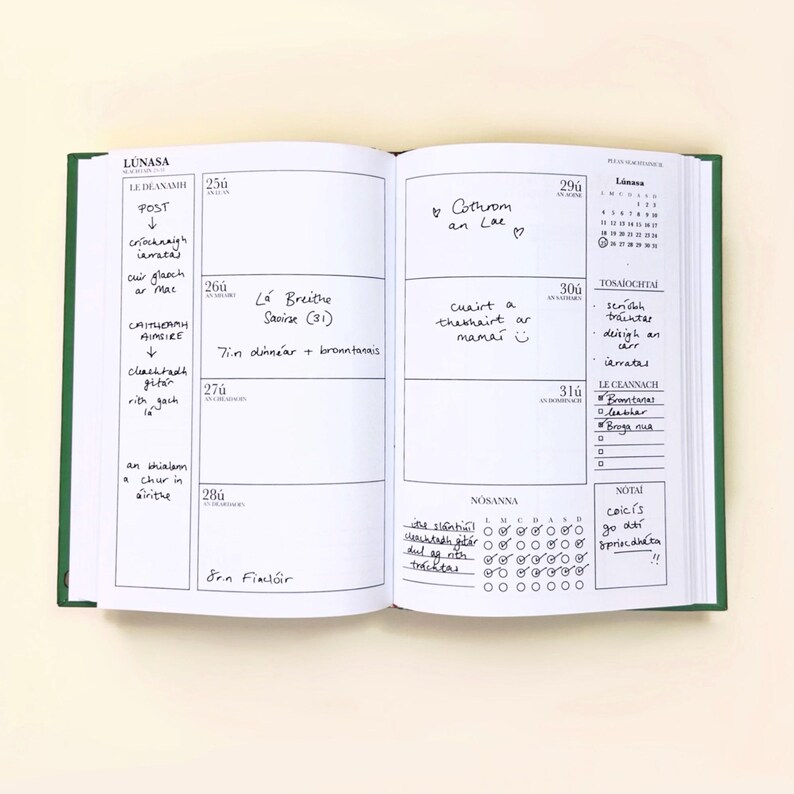 LÚNASA
SEACHTAIN 25-31
LE DÉANAMH
POST
↓
críochnaigh
iarratas
cuir glaoch
ar Mac
CAITHEAMH
AIMSIRE
↓
cleachtadh
gitár
rith gach
lá
an bhialann
a chur in
áirithe
25ú
AN LUAN
26ú
AN MHAIRT
Lá Breithe
Saoirse (31)
7i.n dinnéar + bronntanais
27ú
AN CHÉADAOIN
28ú
AN DÉARDAOIN
8r.n Fiaclóir
29ú
AN AOINE
Cothrom
an Lae
30ú
AN SATHARN
cuairt a
thabhairt ar
mamaí
31ú
AN DOMHNACH
NÓSANNA
L M C D A S D
ithe sláintiúil
cleachtadh gitár
dul ag rith
tráchtas
PLEAN SEACHTAINIÚIL
Lúnasa
L M C D A S D
1 2 3
4 5 6 7 8 9 10
11 12 13 14 15 16 17
18 19 20 21 22 23 24
25 26 27 28 29 30 31
TOSAÍOCHTAÍ
· scríobh
tráchtas
· deisigh an
carr
· iarratas
LE CEANNACH
Bronntanas
leabhar
Broga nua
NÓTAÍ
coicís
go dtí
spriocdháta
!!